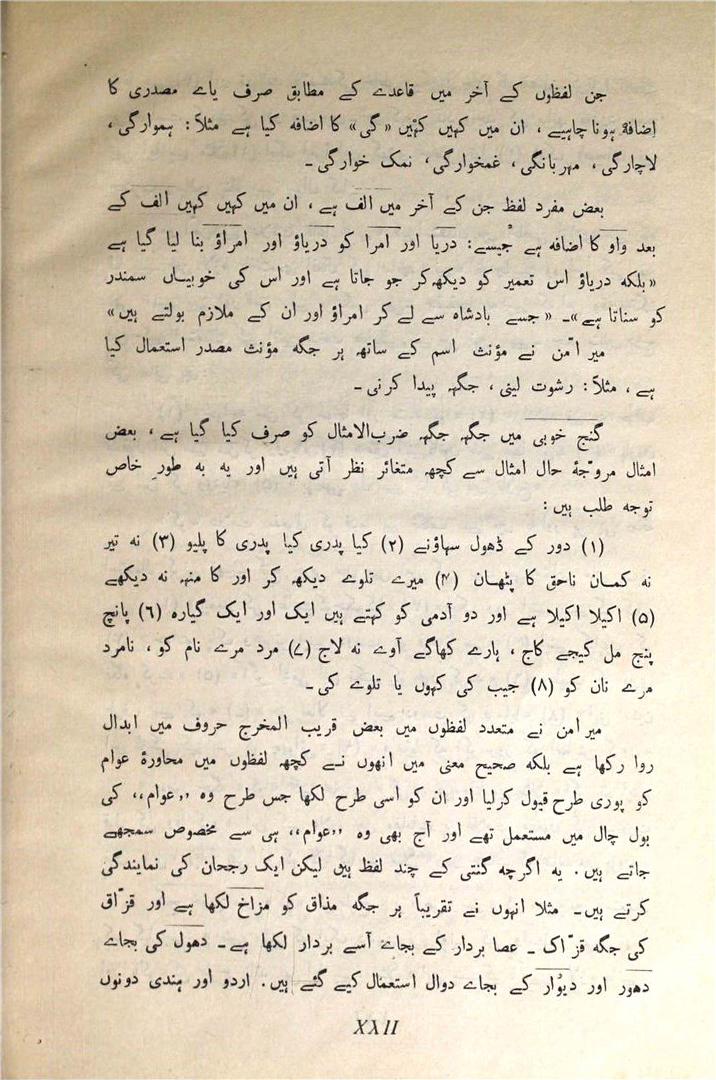 جن لفظوں کے آخر میں قاعدے کے مطابق صرف یاے مصدری کا
اضافۃ ہونا چاہیے ، ان میں کہیں کہیں «گی» کا اضافہ کیا ہے مثلاً: ہموارگی ،
لاچارگی ، مہربانگی ، غمخوارگی ، نمک خوارگی ۔
بعض مفرد لفظ جن کے آخر میں الف ہے ، ان میں کہیں کہیں الف کے
بعد واو کا اضافہ ہے جیسے: دریا اور امرا کو دریاؤ اور امراؤ بنا لیا گیا ہے
«بلکہ دریاؤ اس تعمیر کو دیکھ کر جو جاتا ہے اور اس کی خوبیاں سمندر
کو سناتا ہے»۔ «جسے بادشاہ سے لے کر امراؤ اور ان کے ملازم بولتے ہیں»
میر امّن نے مؤنث اسم کے ساتھ ہر جگہ مؤنث مصدر استعمال کیا
ہے ، مثلاً: رشوت لینی ، جگہ پیدا کرنی ۔
گنج خوبی میں جگہ جگہ ضرب‌الامثال کو صرف کیا گیا ہے ، بعض
امثال مروّجۂ حال امثال سے کچھ متغائر نظر آتی ہیں اور یہ بہ طورِ خاص
توجہ طلب ہیں:
(۱) دور کے ڈھول سہاؤنے (۲) کیا پدری کیا پدری کا پلیو (۳) نہ تیر
نہ کمان ناحق کا پٹھان (۴) میرے تلوے دیکھ کر اور کا منہ نہ دیکھے
(۵) اکیلا اکیلا ہے اور دو آدمی کو کہتے ہیں ایک اور ایک گیارہ (۶) پانچ
پنچ مل کیجے کاج ، ہارے کھاگے آوے نہ لاج (۷) مرد مرے نام کو ، نامرد
مرے نان کو (۸) جیب کی کہوں یا تلوے کی ۔
میر امن نے متعدد لفظوں میں بعض قریب المخرج حروف میں ابدال
روا رکھا ہے بلکہ صحیح معنی میں انھوں نے کچھ لفظوں میں محاورۂ عوام
کو پوری طرح قبول کرلیا اور ان کو اسی طرح لکھا جس طرح وہ ,,عوام،، کی
بول چال میں مستعمل تھے اور آج بھی وہ ,,عوام،، ہی سے مخصوص سمجھے
جاتے ہیں. یہ اگرچہ گنتی کے چند لفظ ہیں لیکن ایک رجحان کی نمایندگی
کرتے ہیں۔ مثلا انہوں نے تقریباً ہر جگہ مذاق کو مزاخ لکھا ہے اور قزّاق
کی جگہ قزّاک ۔ عصا بردار کے بجاے آسے بردار لکھا ہے۔ دھول کی بجاے
دھور اور دیوار کے بجاے دوال استعمال کیے گئے ہیں. اردو اور ہندی دونوں
XXII